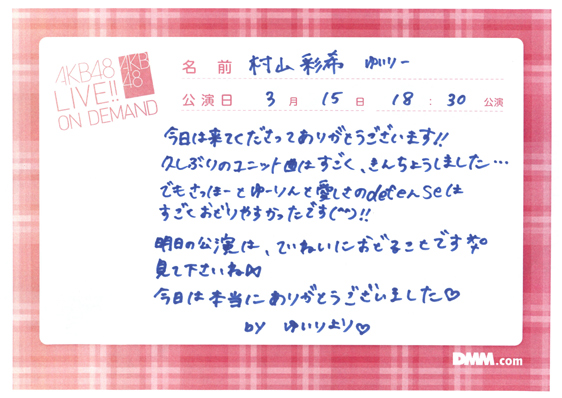 AKB48
LIVE!!
ON DEMAND
AKB
48
名前 村山彩希 ゆいりー
公演日 3月15日 18:30公演
今日は来てくださってありがとうございます!!
久しぶりのユニット曲はすごく、きんちょうしました…
でもさっほーとゆーりんと愛しさのdefenseは
すごくおどりやすかったです(^^)!!
明日の公演は、ていねいにおどることです
見て下さいね
今日は本当にありがとうございました♡
by ゆいりより♡
DMM.com